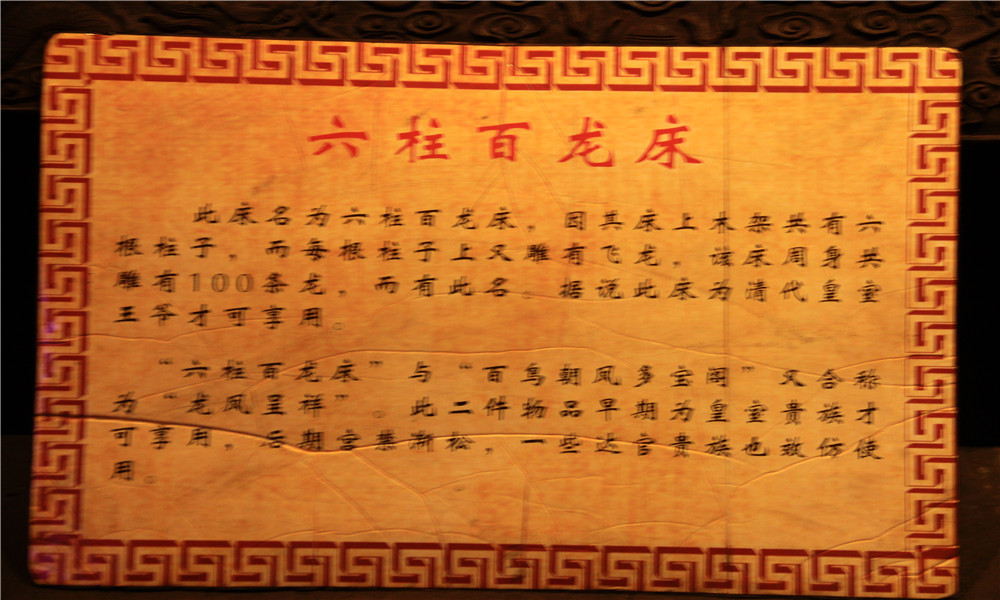 六柱百龙床
此床名为六柱百龙床，因其床上木架共有六
根柱子，而每根柱子上又雕有飞龙，该床周身共
雕有100条龙，而有此名。据说此床为清代皇室
王爷才可享用。
“六柱百龙床”与“百鸟朝凤多宝阁”又合称
为“龙凤呈祥”。此二件物品早期为皇室贵族才
可享用，后期宫禁渐松，一些达官贵族也效仿使
用。